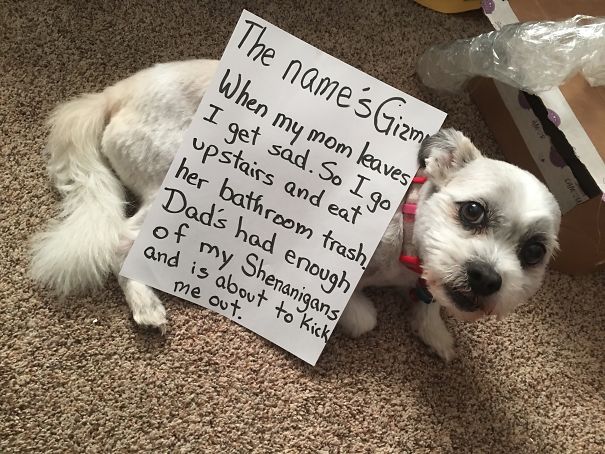 The name's Gizm
When my mom leaves
I get sad. So I go
upstairs and eat
her bathroom trash.
Dad's had enough
of my Shenanigans
and is about to kick
me out.